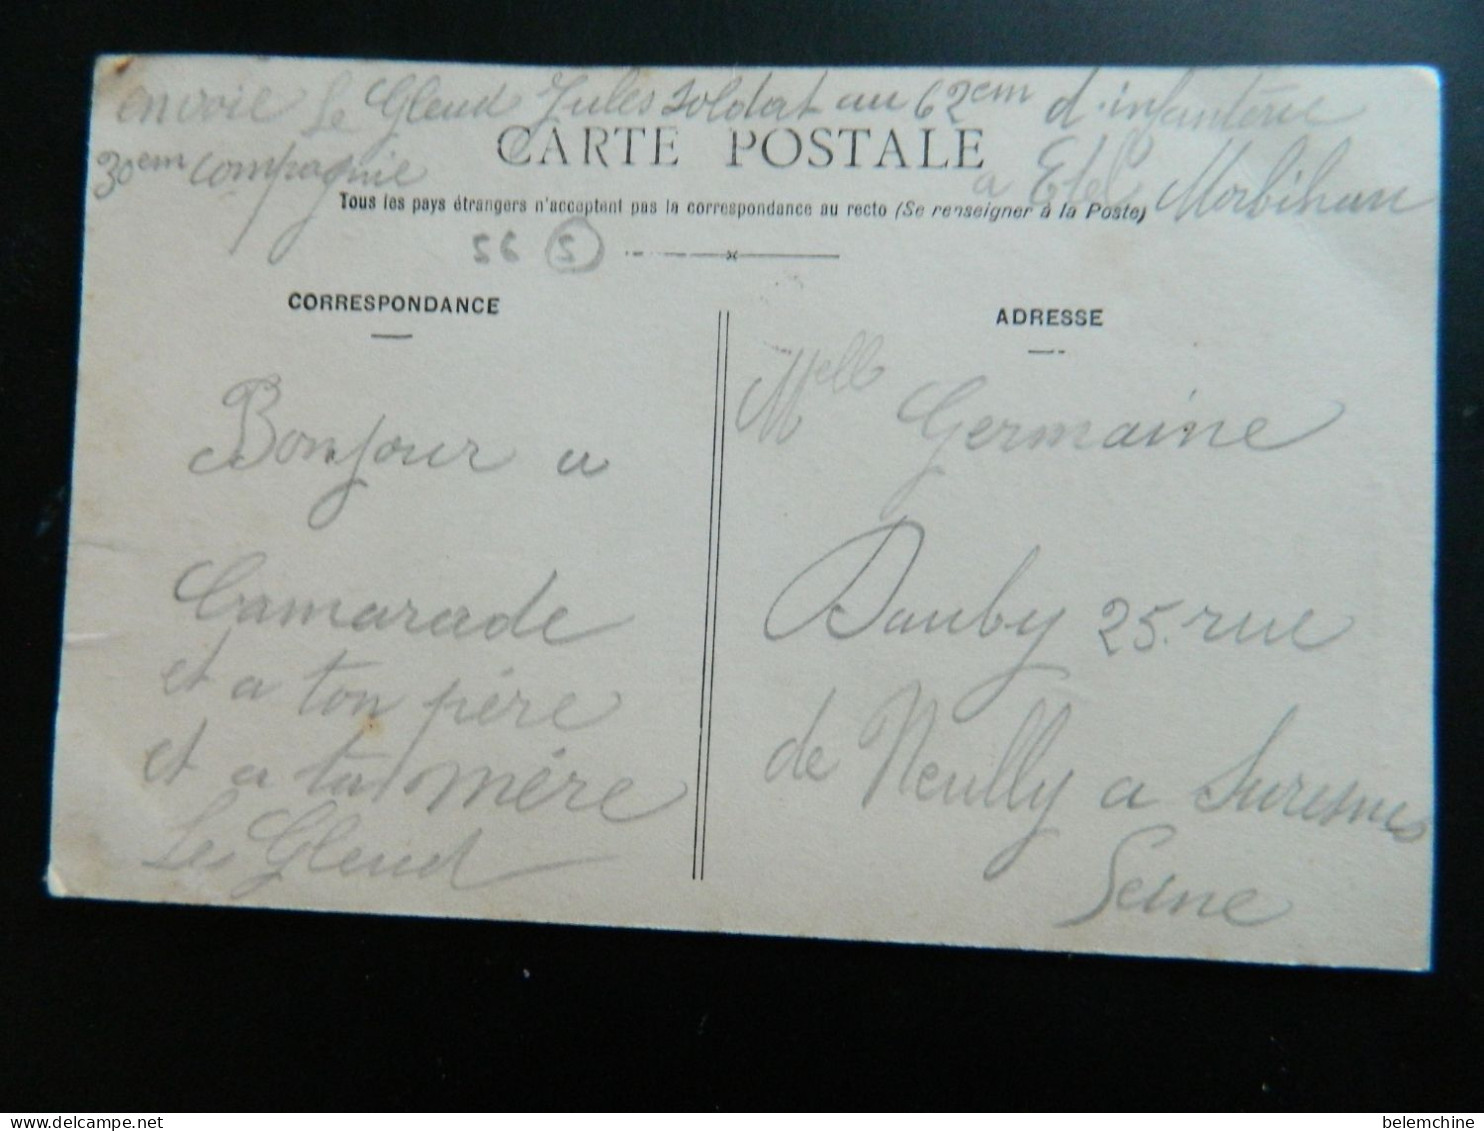 envoie Le Gleud Jules soldat au 62em d'infanterie
CARTE POSTALE
30em compagnie
a Etel Morbihan
Tous les pays étrangers n'acceptent pas la correspondance au recto (Se renseigner à la Poste)
56 5
CORRESPONDANCE
Bonjour a
Camarade
et a ton père
et a ta mère
Le Gleud
ADRESSE
Melle Germaine
Dauby 25. rue
de Neuilly a Suresnes
Seine
delcampe.net
belemchine